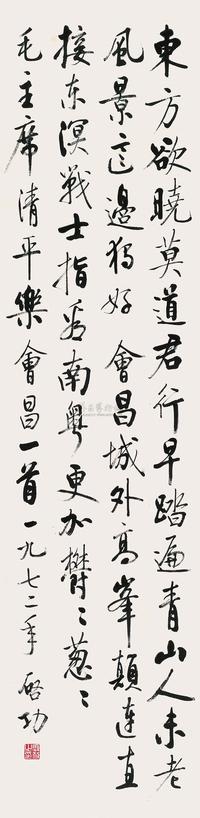 東方欲曉莫道君行早踏遍青山人未老
風景這邊獨好會昌城外高峯顛連直
接東溟戰士指看南粵更加欝〻蔥〻
毛主席清平樂會昌一首一九七二年啓功